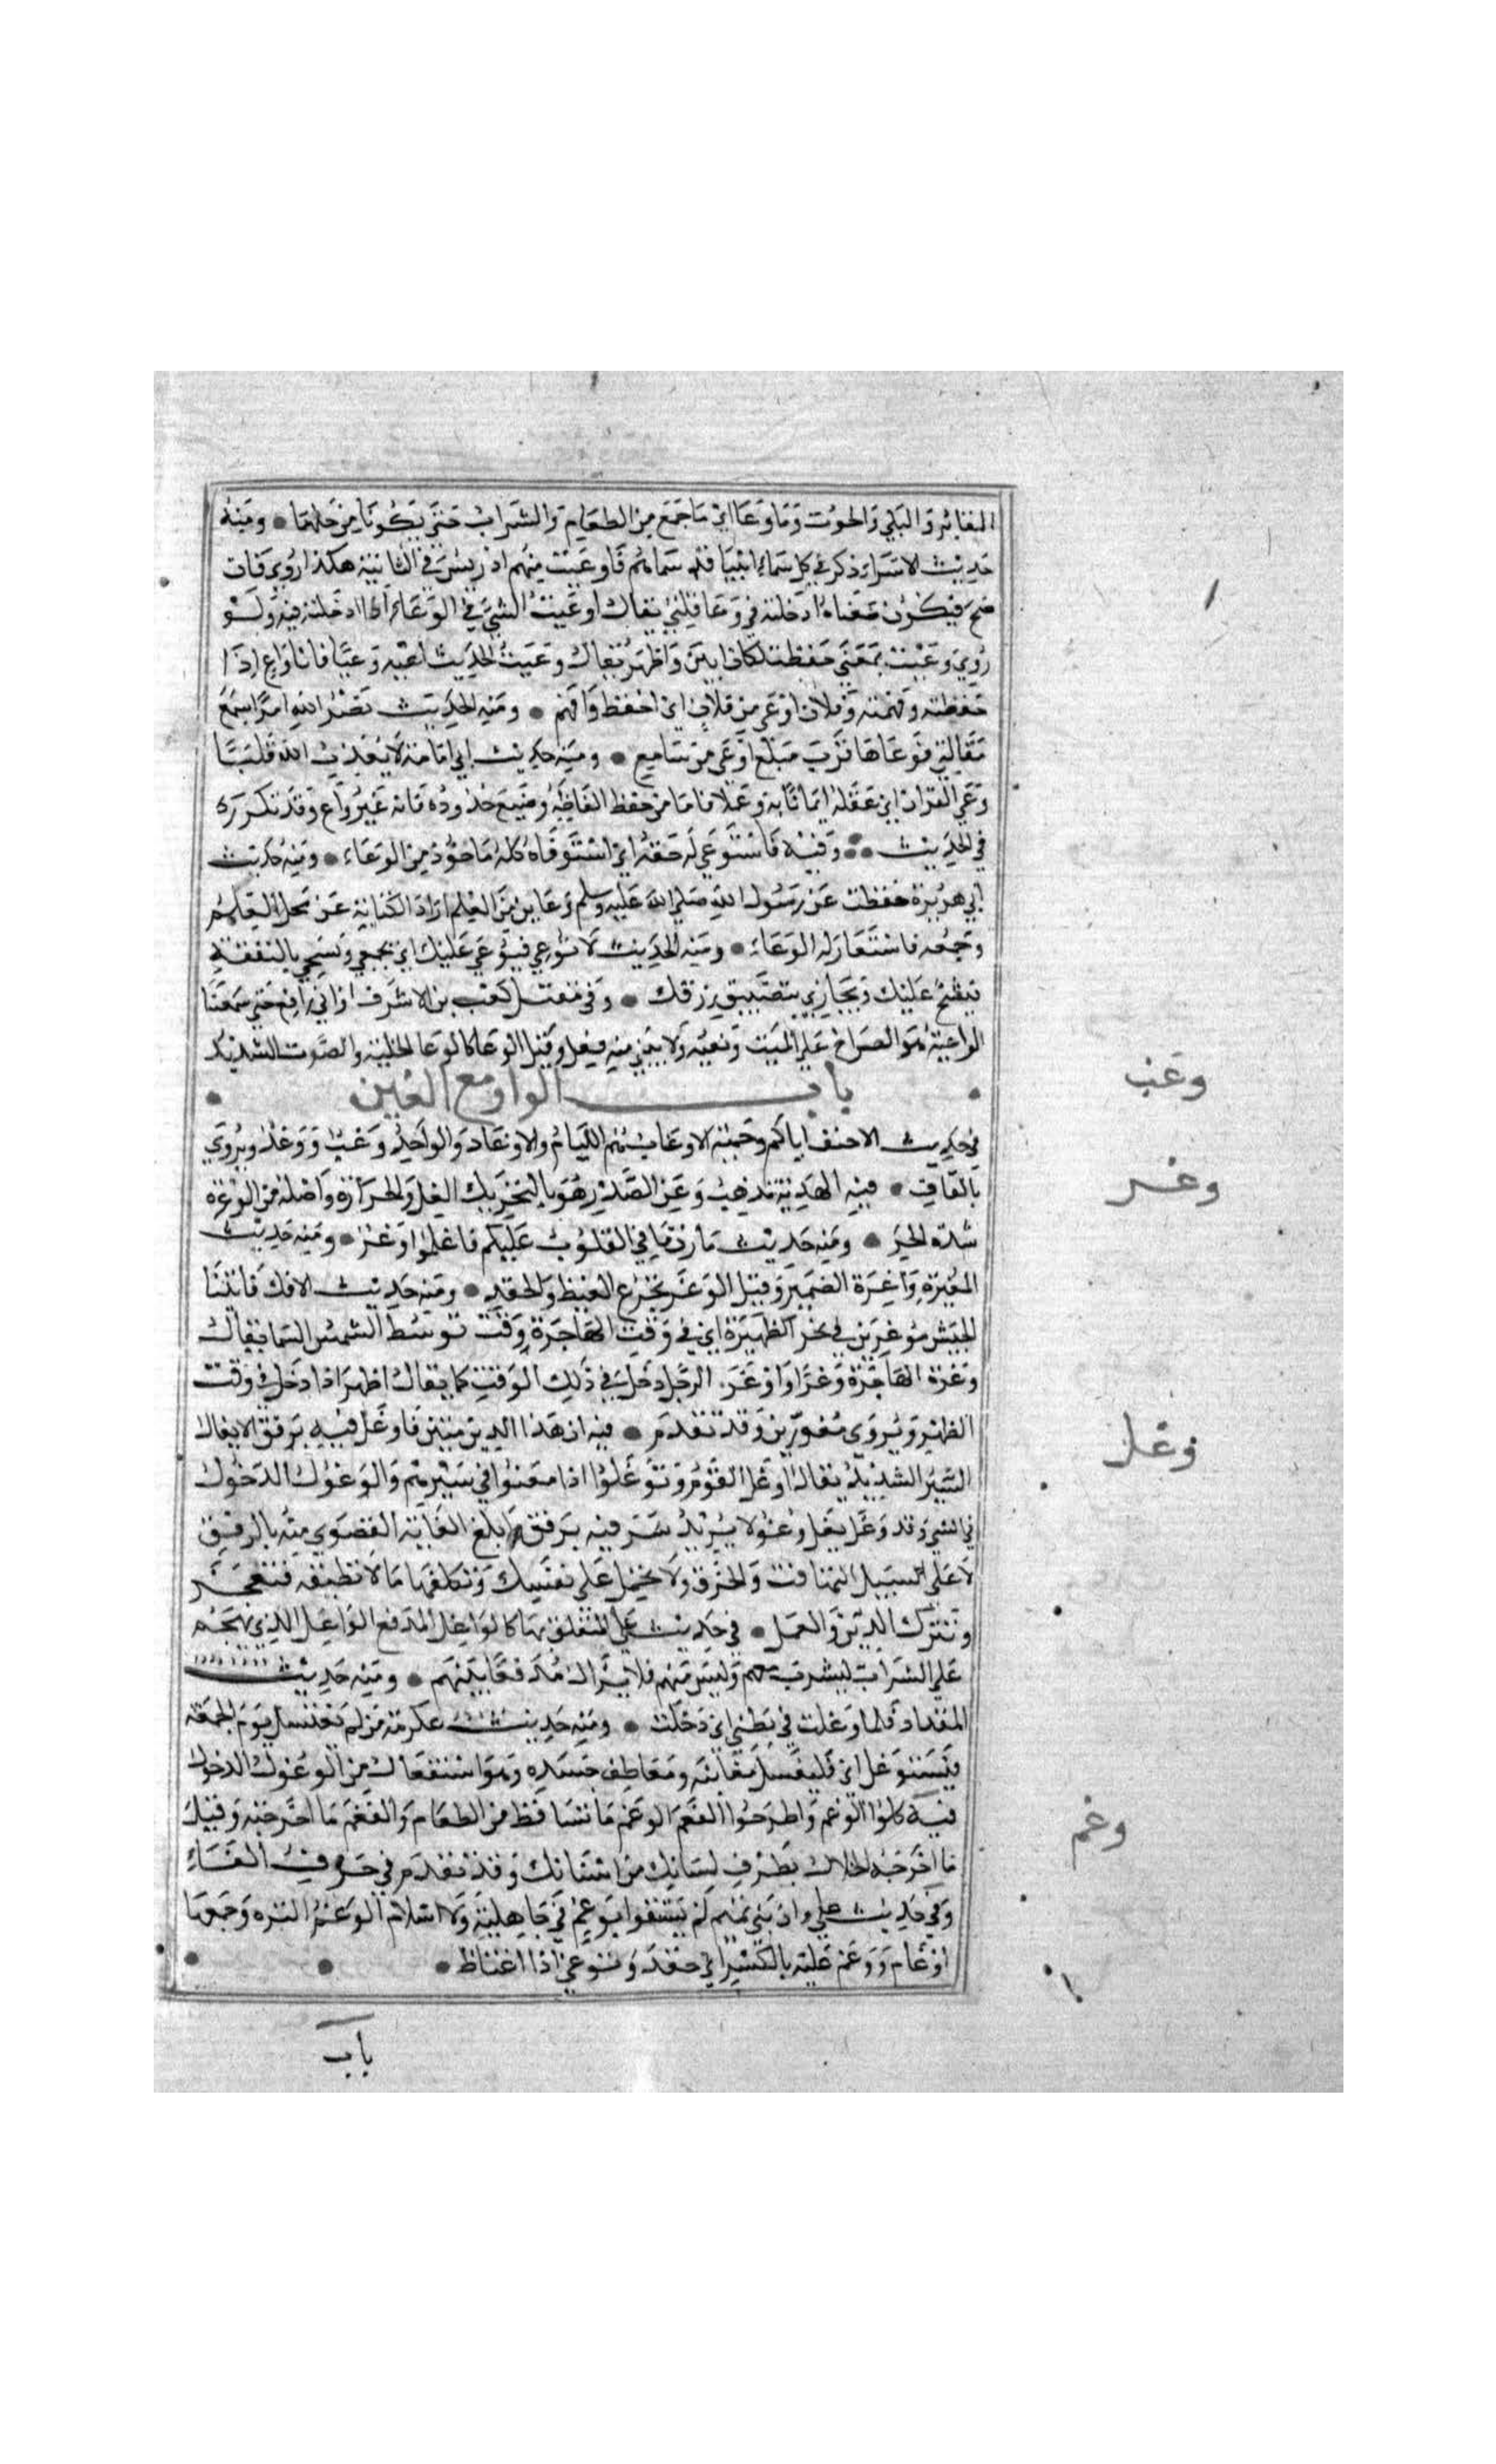 المقابر والبلى والجوف وما وعا اي ما جمع من الطعام والشراب حتى يكونا من حلهما • ومنه
حديث الاسراء ذكر في كل سماء انبيا قد سماهم فاوعيت منهم ادريس في الثانية هكذا روي فان
صح فيكون معناه ادخلته في وعا قلبي يقال اوعيت الشي في الوعاء اذا ادخلته فيه ولو
روي وعيت بمعنى حفظت لكان ابين واظهر يقال وعيت الحديث اعيه وعيا فانا واع اذا
حفظته وفهمته وفلان اوعى من فلان اي احفظ وافهم • ومنه الحديث نضر الله امرا سمع
مقالتي فوعاها فرب مبلغ اوعى من سامع • ومنه حديث ابي امامة لا يعذب الله قلبا
وعي القران اي عقله ايمانا به وعملا فاما من حفظ الفاظه وضيع حدوده فانه غير واع وقد تكرر
في الحديث وفيه فاستوعى له حقه اي استوفاه كله ماخوذ من الوعاء • ومنه حديث
ابي هريرة حفظت عن رسول الله صلى الله عليه وسلم وعاين من العلم اراد الكناية عن محل العلم
وجمعه فاستعار له الوعاء • ومنه الحديث لا توعي فيوعى عليك اي تجمعي وتشحي بالنفقة
فيشح عليك وتجازي بتضييق رزقك • وفي مقتل كعب بن الاشرف او ابي رافع حتى سمعنا
الواعية هو الصراخ على الميت ونعيه ولا يبنى منه فعل وقيل الوعا كالوغا الجلبة والصوت الشديد
باب الواو مع الغين
وغب
في حديث الاحنف اياكم وحمية الاوغاب هم الليام والاوغاد والواحد وغب ووغد ويروي
وغر
بالقاف • فيه الهدية تذهب وغر الصدر هو بالتحريك الغل والحرارة واصله من الوغرة
شدة الحر • ومنه حديث مازن ما في القلوب عليكم فاعلموا وغر • ومنه حديث
المغيرة واغرة الضمير وقيل الوغر تجرع الغيظ والحقد • ومنه حديث الافك فاتينا
الجيش موغرين في نحر الظهيرة اي في وقت الهاجرة وقت توسط الشمس السما يقال
وغرة الهاجرة وغرا واوغر الرجل دخل في ذلك الوقت كما يقال اظهر اذا دخل في وقت
وغل
الظهر ويروى مغورين وقد تقدم • فيه ان هذا الدين متين فاوغل فيه برفق الايغال
السير الشديد يقال اوغل القوم وتوغلوا اذا امعنوا في سيرهم والوغول الدخول
في الشي وقد وغل يغل وغولا يريد سر فيه برفق وابلغ الغاية القصوى منه بالرفق
لا على سبيل التهافت والخرق ولا تحمل على نفسك وتكلفها ما لا تطيقه فتعجز
وتترك الدين والعمل • في حديث علي المتعلق بها كالواغل المدفع الواغل الذي يهجم
على الشراب ليشرب معهم وليس منهم فلا يزال مدفعا بينهم • ومنه حديث
المقداد فلما وغلت في بطني اي دخلت • ومنه حديث عكرمة من لم يغتسل يوم الجمعة
فليستوغل اي فليغسل مغابنه ومعاطف جسده وهو استفعال من الوغول الدخول
وغم
فيه كلوا الوغم واطرحوا الفغم الوغم ما تساقط من الطعام والفغم ما اخرجته وقيل
ما اخرجه الخلال بطرف لسانك من اسنانك وقد تقدم في حرف الفاء
وفي حديث علي وان بني تميم لم يسبقوا بوغم في جاهلية ولا اسلام الوغم الترة وجمعها
اوغام ووغم عليه بالكسر اي حقد وتوغم اذا اغتاظ •
باب